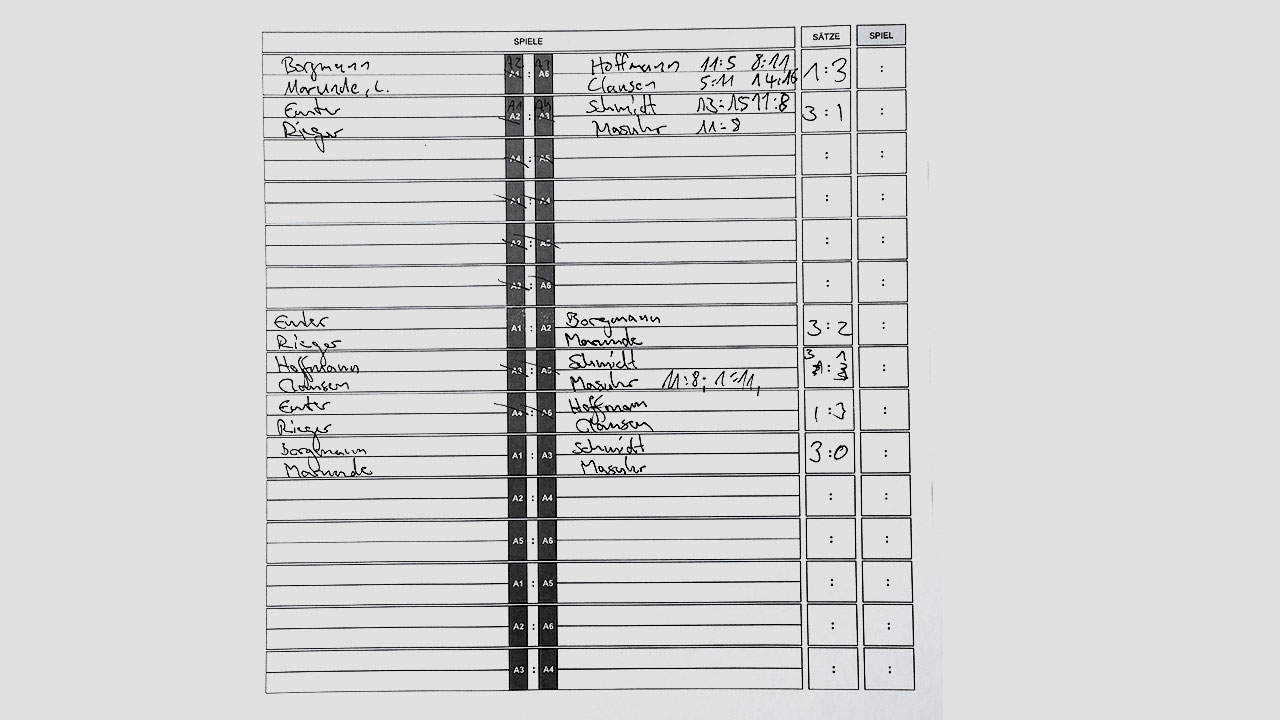 SPIELE SÄTZE SPIEL
Borgmann A2 : A3 Hoffmann 11:5 8:11 1:3
Marunde, L. A1 A6 Clausen 5:11 14:16
Emter A1 A4 Schmidt 13:15 11:8 3:1
Rieger A2 : A3 Masuhr 11:8
A4 : A5 : :
A1 : A4 : :
A2 : : :
: A6 : :
Emter A1 : A2 Borgmann 3:2 :
Rieger Marunde
Hoffmann A3 : Schmidt 3 1
Clausen Masuhr 11:8; 1:11, :
Emter A4 : A6 Hoffmann 1:3 :
Rieger Clausen
Borgmann A1 : A3 Schmidt 3:0 :
Marunde Masuhr
A2 : A4 : :
A5 : A6 : :
A1 : A5 : :
A2 : A6 : :
A3 : A4 : :